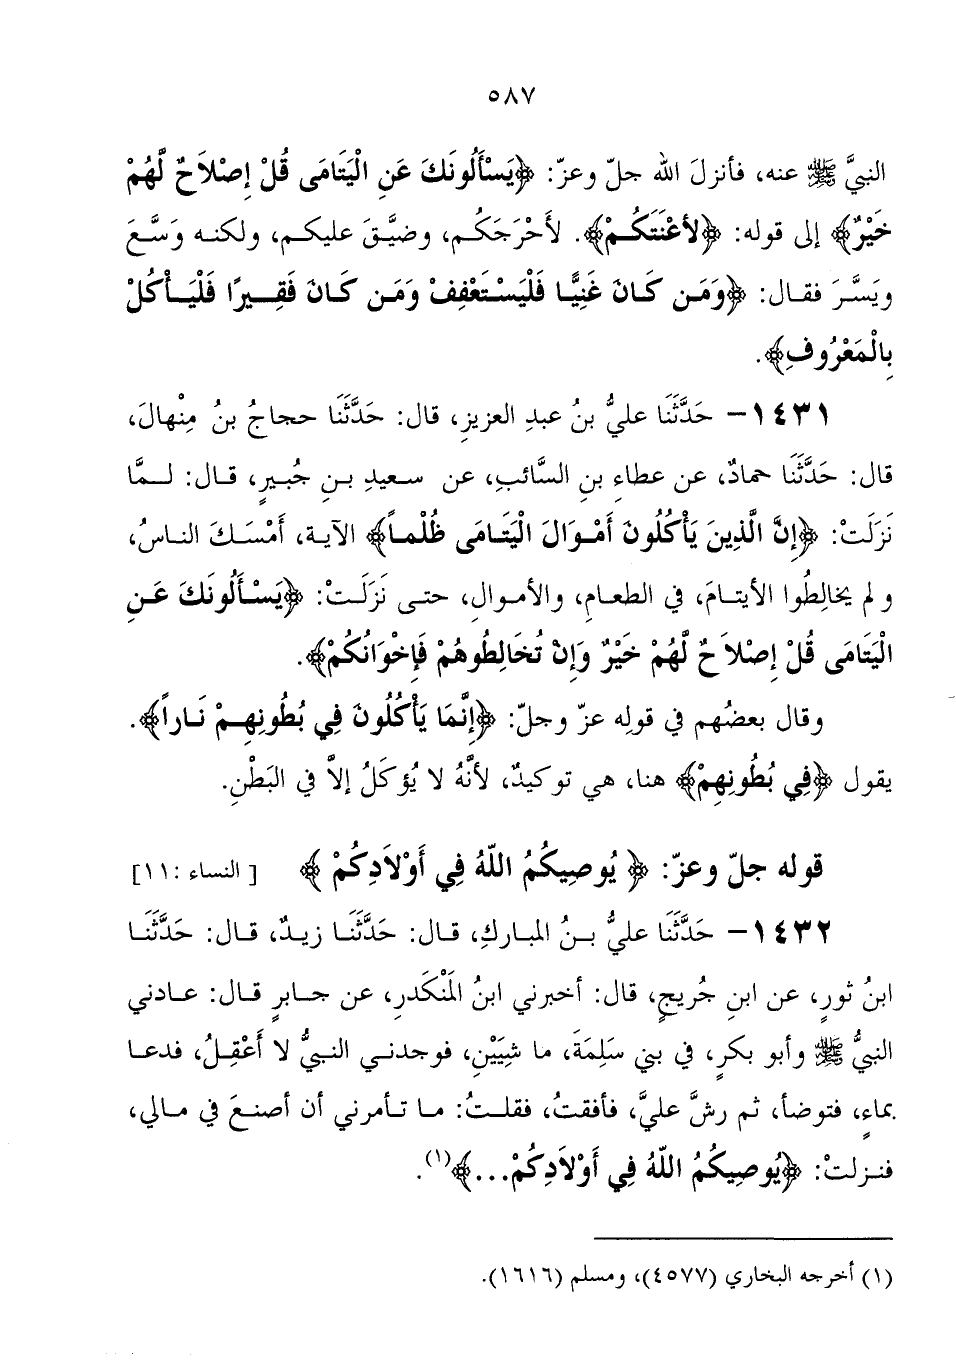 ٥٨٧
النبيَّ ﷺ عنه، فأنزلَ الله جلّ وعزّ: ﴿يَسْأَلُونَكَ عَنِ الْيَتَامَى قُلْ إِصْلَاحٌ لَّهُمْ
خَيْرٌ﴾ إلى قوله: ﴿لأَعْنَتَكُمْ﴾. لأَحْرَجَكُم، وضيَّقَ عليكم، ولكنه وَسَّعَ
ويَسَّرَ فقال: ﴿وَمَن كَانَ غَنِيًّا فَلْيَسْتَعْفِفْ وَمَن كَانَ فَقِيرًا فَلْيَأْكُلْ
بِالْمَعْرُوفِ﴾.
١٤٣١– حَدَّثَنَا عليُّ بنُ عبدِ العزيزِ، قال: حَدَّثَنَا حجاجُ بنُ مِنْهالَ،
قال: حَدَّثَنَا حمادٌ، عن عطاءِ بنِ السَّائبِ، عن سعيدِ بنِ جُبيرٍ، قال: لمَّا
نَزَلَتْ: ﴿إِنَّ الَّذِينَ يَأْكُلُونَ أَمْوَالَ الْيَتَامَى ظُلْماً﴾ الآية، أَمْسَكَ الناسُ،
ولم يخالِطُوا الأيتامَ، في الطعامِ، والأموالِ، حتى نَزَلَتْ: ﴿يَسْأَلُونَكَ عَنِ
الْيَتَامَى قُلْ إِصْلاَحٌ لَّهُمْ خَيْرٌ وَإِنْ تُخَالِطُوهُمْ فَإِخْوَانُكُمْ﴾.
وقال بعضُهم في قولِه عزّ وجلّ: ﴿إِنَّمَا يَأْكُلُونَ فِي بُطُونِهِمْ نَاراً﴾.
يقول ﴿فِي بُطُونِهِمْ﴾ هنا، هي توكيدٌ، لأنَّهُ لا يُؤكَلُ إلاَّ في البَطْنِ.
قوله جلّ وعزّ: ﴿ يُوصِيكُمُ اللّهُ فِي أَوْلاَدِكُمْ ﴾ [ النساء :١١]
١٤٣٢– حَدَّثَنَا عليُّ بنُ المباركِ، قال: حَدَّثَنَا زيدٌ، قال: حَدَّثَنَا
ابنُ ثورٍ، عن ابنِ جُريجٍ، قال: أخبرني ابنُ المَنْكَدرِ، عن جابرٍ قال: عادني
النبيُّ ﷺ وأبو بكرٍ، في بني سَلِمَةَ، ما شِيَيْنِ، فوجدني النبيُّ لا أَعْقِلُ، فدعا
بماءٍ، فتوضأ، ثم رشَّ عليَّ، فأفقتُ، فقلتُ: ما تأمرني أن أصنعَ في مالي،
فنزلتْ: ﴿يُوصِيكُمُ اللّهُ فِي أَوْلاَدِكُمْ...﴾(١).
(١) أخرجه البخاري (٤٥٧٧)، ومسلم (١٦١٦).